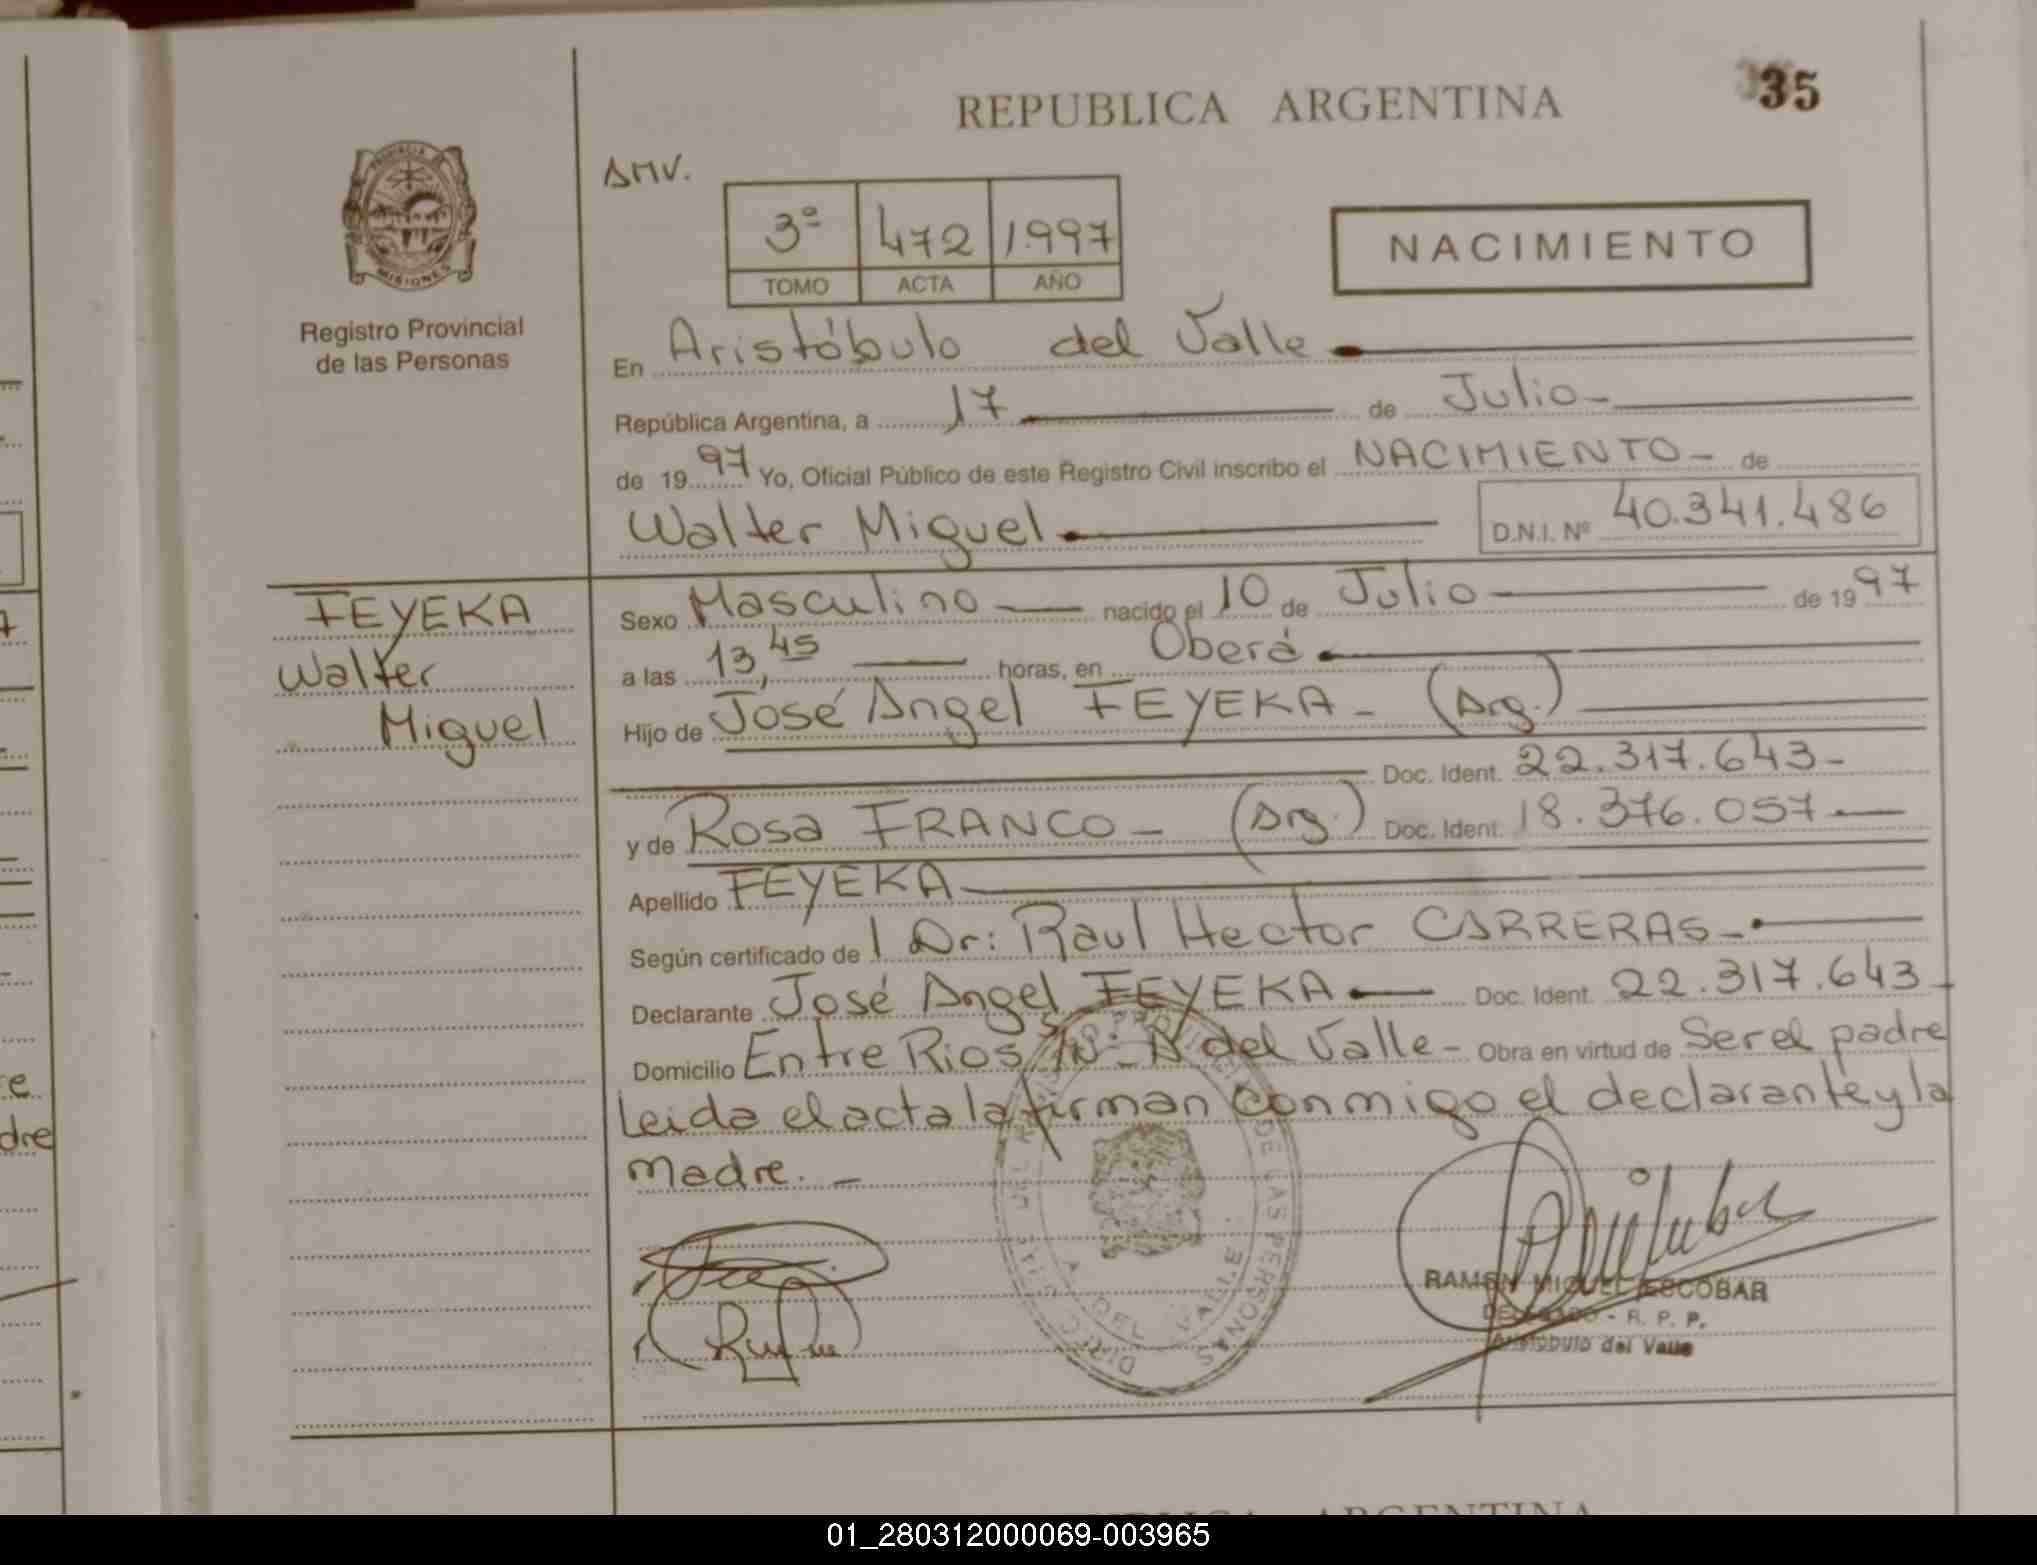 REPUBLICA ARGENTINA
35
PROVINCIA DE
MISIONES
Registro Provincial
de las Personas
AMV.
3º 472 1.997
TOMO ACTA AÑO
NACIMIENTO
En Aristóbulo del Valle
República Argentina, a 17 de Julio-
de 1997 Yo, Oficial Público de este Registro Civil inscribo el NACIMIENTO- de
Walter Miguel D.N.I. Nº 40.341.486
FEYEKA
Walter
Miguel
Sexo Masculino nacido el 10 de Julio de 1997
a las 13,45 horas, en Oberá
Hijo de José Angel FEYEKA- (Arg.)
Doc. Ident. 22.317.643-
y de Rosa FRANCO- (Arg.) Doc. Ident. 18.376.057-
Apellido FEYEKA
Según certificado de l Dr: Raul Hector CARRERAS-
Declarante José Angel FEYEKA Doc. Ident. 22.317.643-
Domicilio Entre Rios S/Nº- A del Valle- Obra en virtud de Ser el padre
Leida el acta la firman conmigo el declarante y la
madre.-
DE LAS PERSONAS
A. DEL VALLE
RAMON MIGUEL ESCOBAR
DELEGADO - R. P. P.
Aristóbulo del Valle
ARGENTINA
01_280312000069-003965